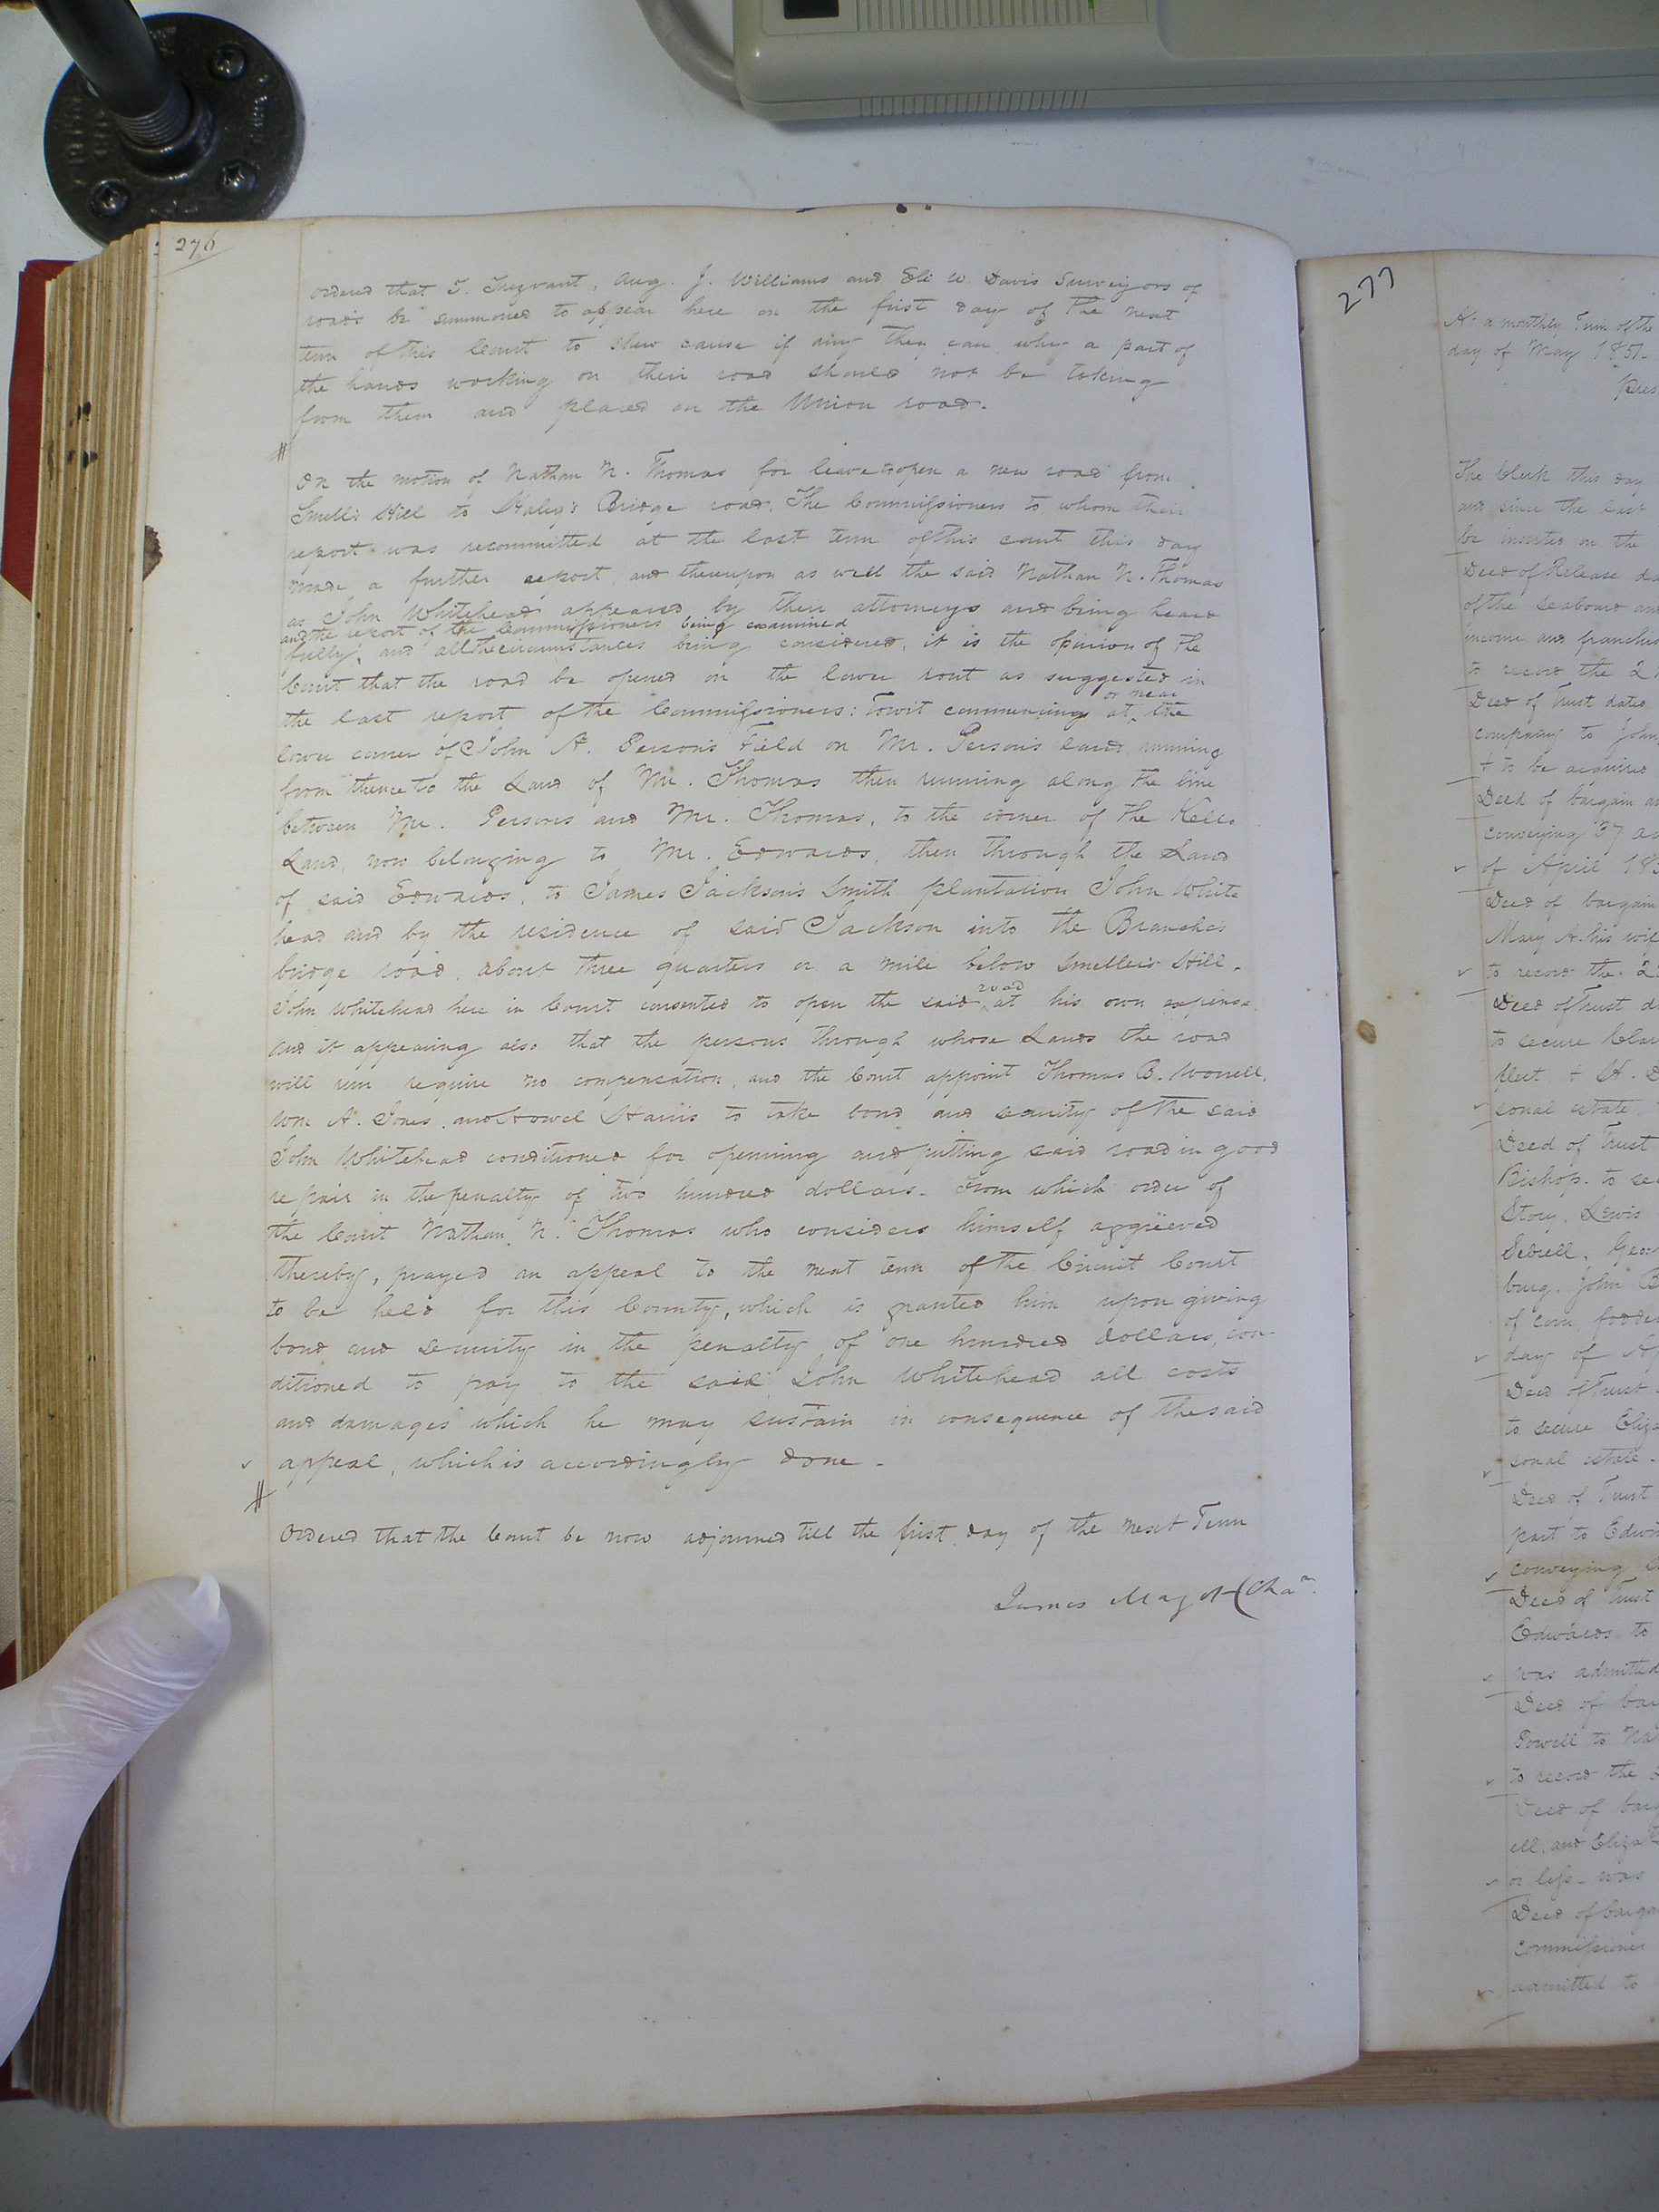 276
Ordered that T. Trezvant, Aug. J. Williams and Eli W. Davis Surveyors of
roads be summoned to appear here on the first day of the next
term of this Court to shew cause if any they can why a part of
the hands working on their road should not be taking
from them and placed on the Union road.
On the motion of Nathan N. Thomas for leave to open a new road from
Smell's Hill to Haley's Bridge road, The Commissioners to whom their
report was recommitted at the last term of this court this day
made a further report, and thereupon as well the said Nathan N. Thomas
as John Whitehead appeared by their attorneys and being heard
and the report of the Commissioners being examined
fully, and all the circumstances being considered, it is the opinion of the
Court that the road be opened on the lower rout as suggested in
or near
the last report of the Commissioners: Towit commencing at the
lower corner of John A. Person's Field on Mr. Person's land, running
from thence to the Land of Mr. Thomas then running along the line
between Mr. Persons and Mr. Thomas, to the corner of the Kello
Land, now belonging to Mr. Edwards, then through the Land
of said Edwards, to James Jackson's Smith plantation John White
head and by the residence of said Jackson into the Branches
bridge road, about three quarters or a mile below Smellers Hill.
road
John Whitehead here in Court consented to open the said at his own expense
and it appearing also that the persons through whose Lands the road
will run require no compensation, and the Court appoint Thomas B. Worrell,
Wm A. Jones, and Howel Harris to take bond and security of the said
John Whitehead conditioned for openning and putting said road in good
repair in the penalty of two hundred dollars. From which order of
the Court Nathan N. Thomas who considers himself aggrieved
thereby, prayed an appeal to the next term of the Circuit Court
to be held for this County, which is granted him upon giving
bond and security in the penalty of one hundred dollars, con-
ditioned to pay to the said John Whitehead all costs
and damages which he may sustain in consequence of the said
appeal, which is accordingly done.
Ordered that the Court be now adjourned till the first day of the next Term
James Maget Cham
277
At a monthly Term of the
day of May 1851.
Pres
The Clerk this day
and since the last
be inserted on the
Deed of Release da
of the seaboard an
income and franchis
to record the 2
Deed of Trust dated
company to John
+ to be acquired
Deed of bargain a
conveying 37 ac
of April 185
Deed of bargain
Mary A. his wif
to record the 2
Deed of Trust d
to secure
fleet + A. D
sonal estate.
Deed of Trust
Bishop. to se
Story, Lewis
Sebrell, Geor
burg. John B
of corn fodder
day of Ap
Deed of Trust
to secure Eliza
sonal estate.
Deed of Trust
part to Edwi
conveying
Deed of Trust
Edwards to
was admitted
Deed of bar
Powell to Na
to record the
Deed of barg
ell, and Eliza
or less was
Deed of barga
Commissioner
admitted to